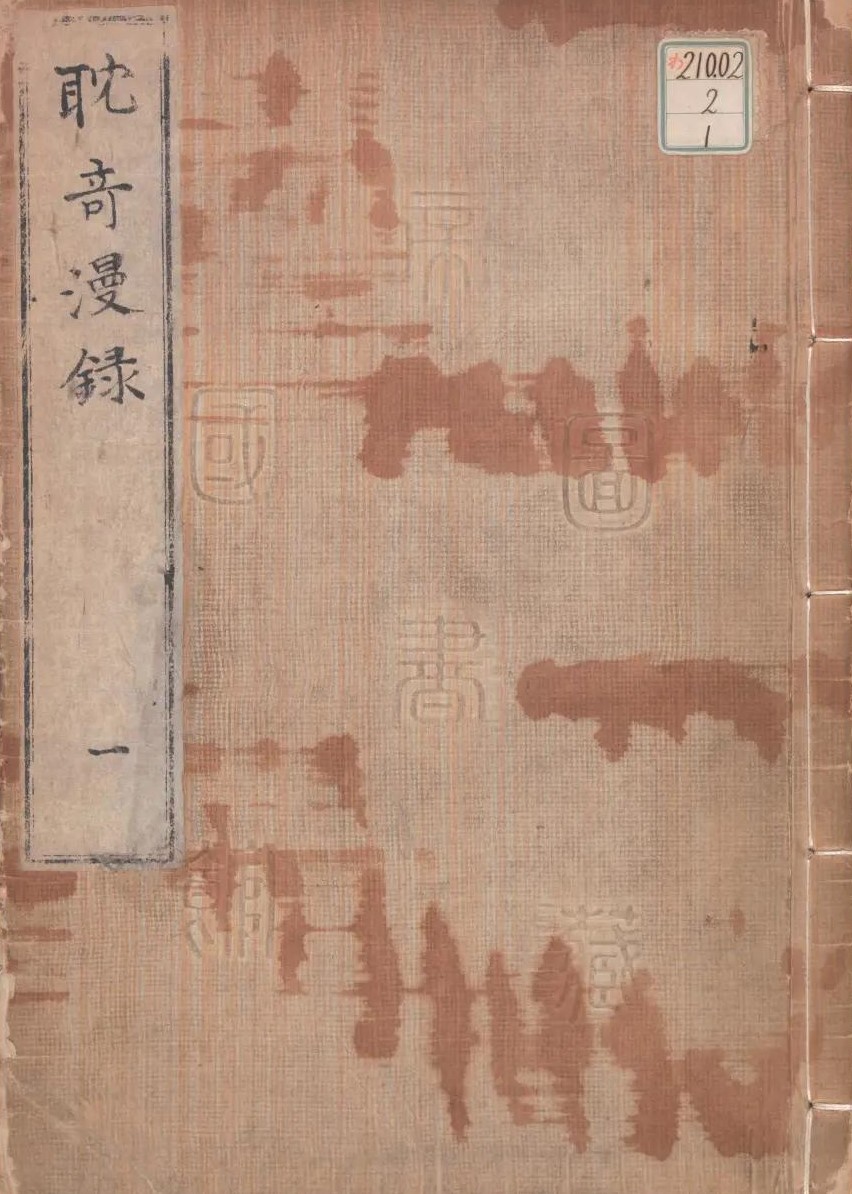 耽奇漫録
一
わ210.02
2
1
帝
國
圖
書
館
藏